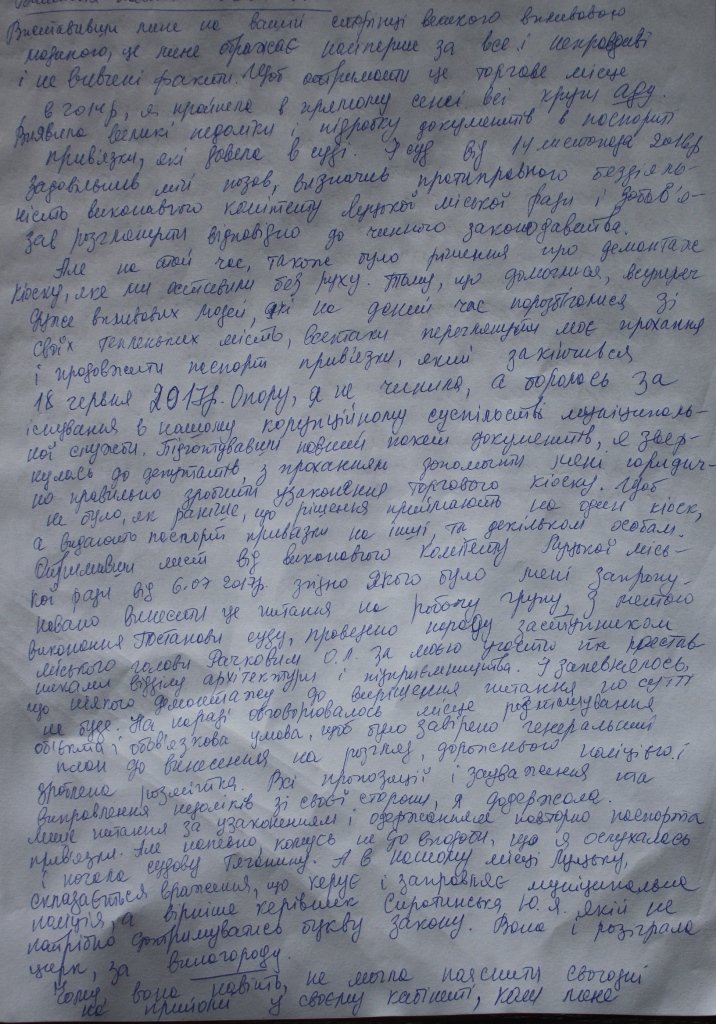 Виставивши мене на вашій сторінці великого впливового
людиною, це мене ображає найперше за все і неправдиві
і не вивчені факти. Щоб отримати це торгове місце
в 2014р, я пройшла в прямому сенсі всі круги аду.
Виявила великі недоліки і підробку документів в паспорті
прив'язки, які довела в суді. І суд від 14 листопада 2016р
задовільнив мій позов, визначив протиправного бездіяль-
ність виконавчого комітету Луцької міської ради і зобов'я-
зав розглянути відповідно до чинного законодавства.
Але на той час, також було рішення про демонтаж
кіоску, яке ми оставили без руху. Тому, що домоглися, всупереч
дуже впливових людей, які на даний час порозбігалися зі
своїх тепленьких місць, всетаки переглянути моє прохання
і продовжити паспорт прив'язки, який закінчився
18 червня 2017р. Опору, я не чинила, а боролась за
існування в нашому корупційному суспільстві муніципаль-
ної служби. Підготувавши повний пакет документів, я звер-
нулась до депутатів, з проханням допомогти мені юридич-
но правильно зробити узаконення торгового кіоску. Щоб
не було, як раніше, що рішення приймають на один кіоск,
а видають паспорт привязки на інші, та декільком особам.
Отримавши лист від виконавчого комітету Луцької місь-
кої ради від 6.07 2017р. згідно якого було мені запропо-
новано винести це питання на робочу групу, з метою
виконання Постанови суду, проведено нараду заступником
міського голови Рачковим О.Л. За моєю участі та представ
никами відділу архітектури і підприємництва. Я запевнилась,
що ніякого демонтажу до вирішення питання по суті
не буде. На нараді обговорювалось місце розташування
об'єкта і обов'язкова умова, щоб було завірено генеральний
план до винесення на розгляд, дорожнього поліцією і
зроблена розмітка. Всі пропозиції і зауваження та
виправлення недоліків зі своєї сторони, я додержала.
Моє питання за узаконенням і одержанням повторно паспорта
прив'язки. Але напевно комусь не до вподоби, що я ослухалась
і почала судову тяганину. А в нашому місці Луцьку,
складається враження, що керує і заправляє муніципальна
поліція, а вірніше керівник Сиротинська Ю.Я. якій не
потрібно дотримуватись букву закону. Вона і розіграла
цирк, за винагороду.
Чому вона навіть, не могла пояснити сьогодні
на прийомі у своєму кабінеті, кому мене